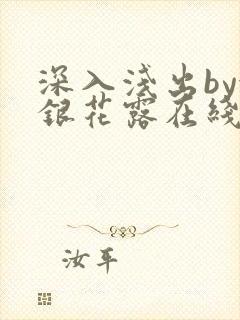 深入浅出by
銀花露在线
汝平